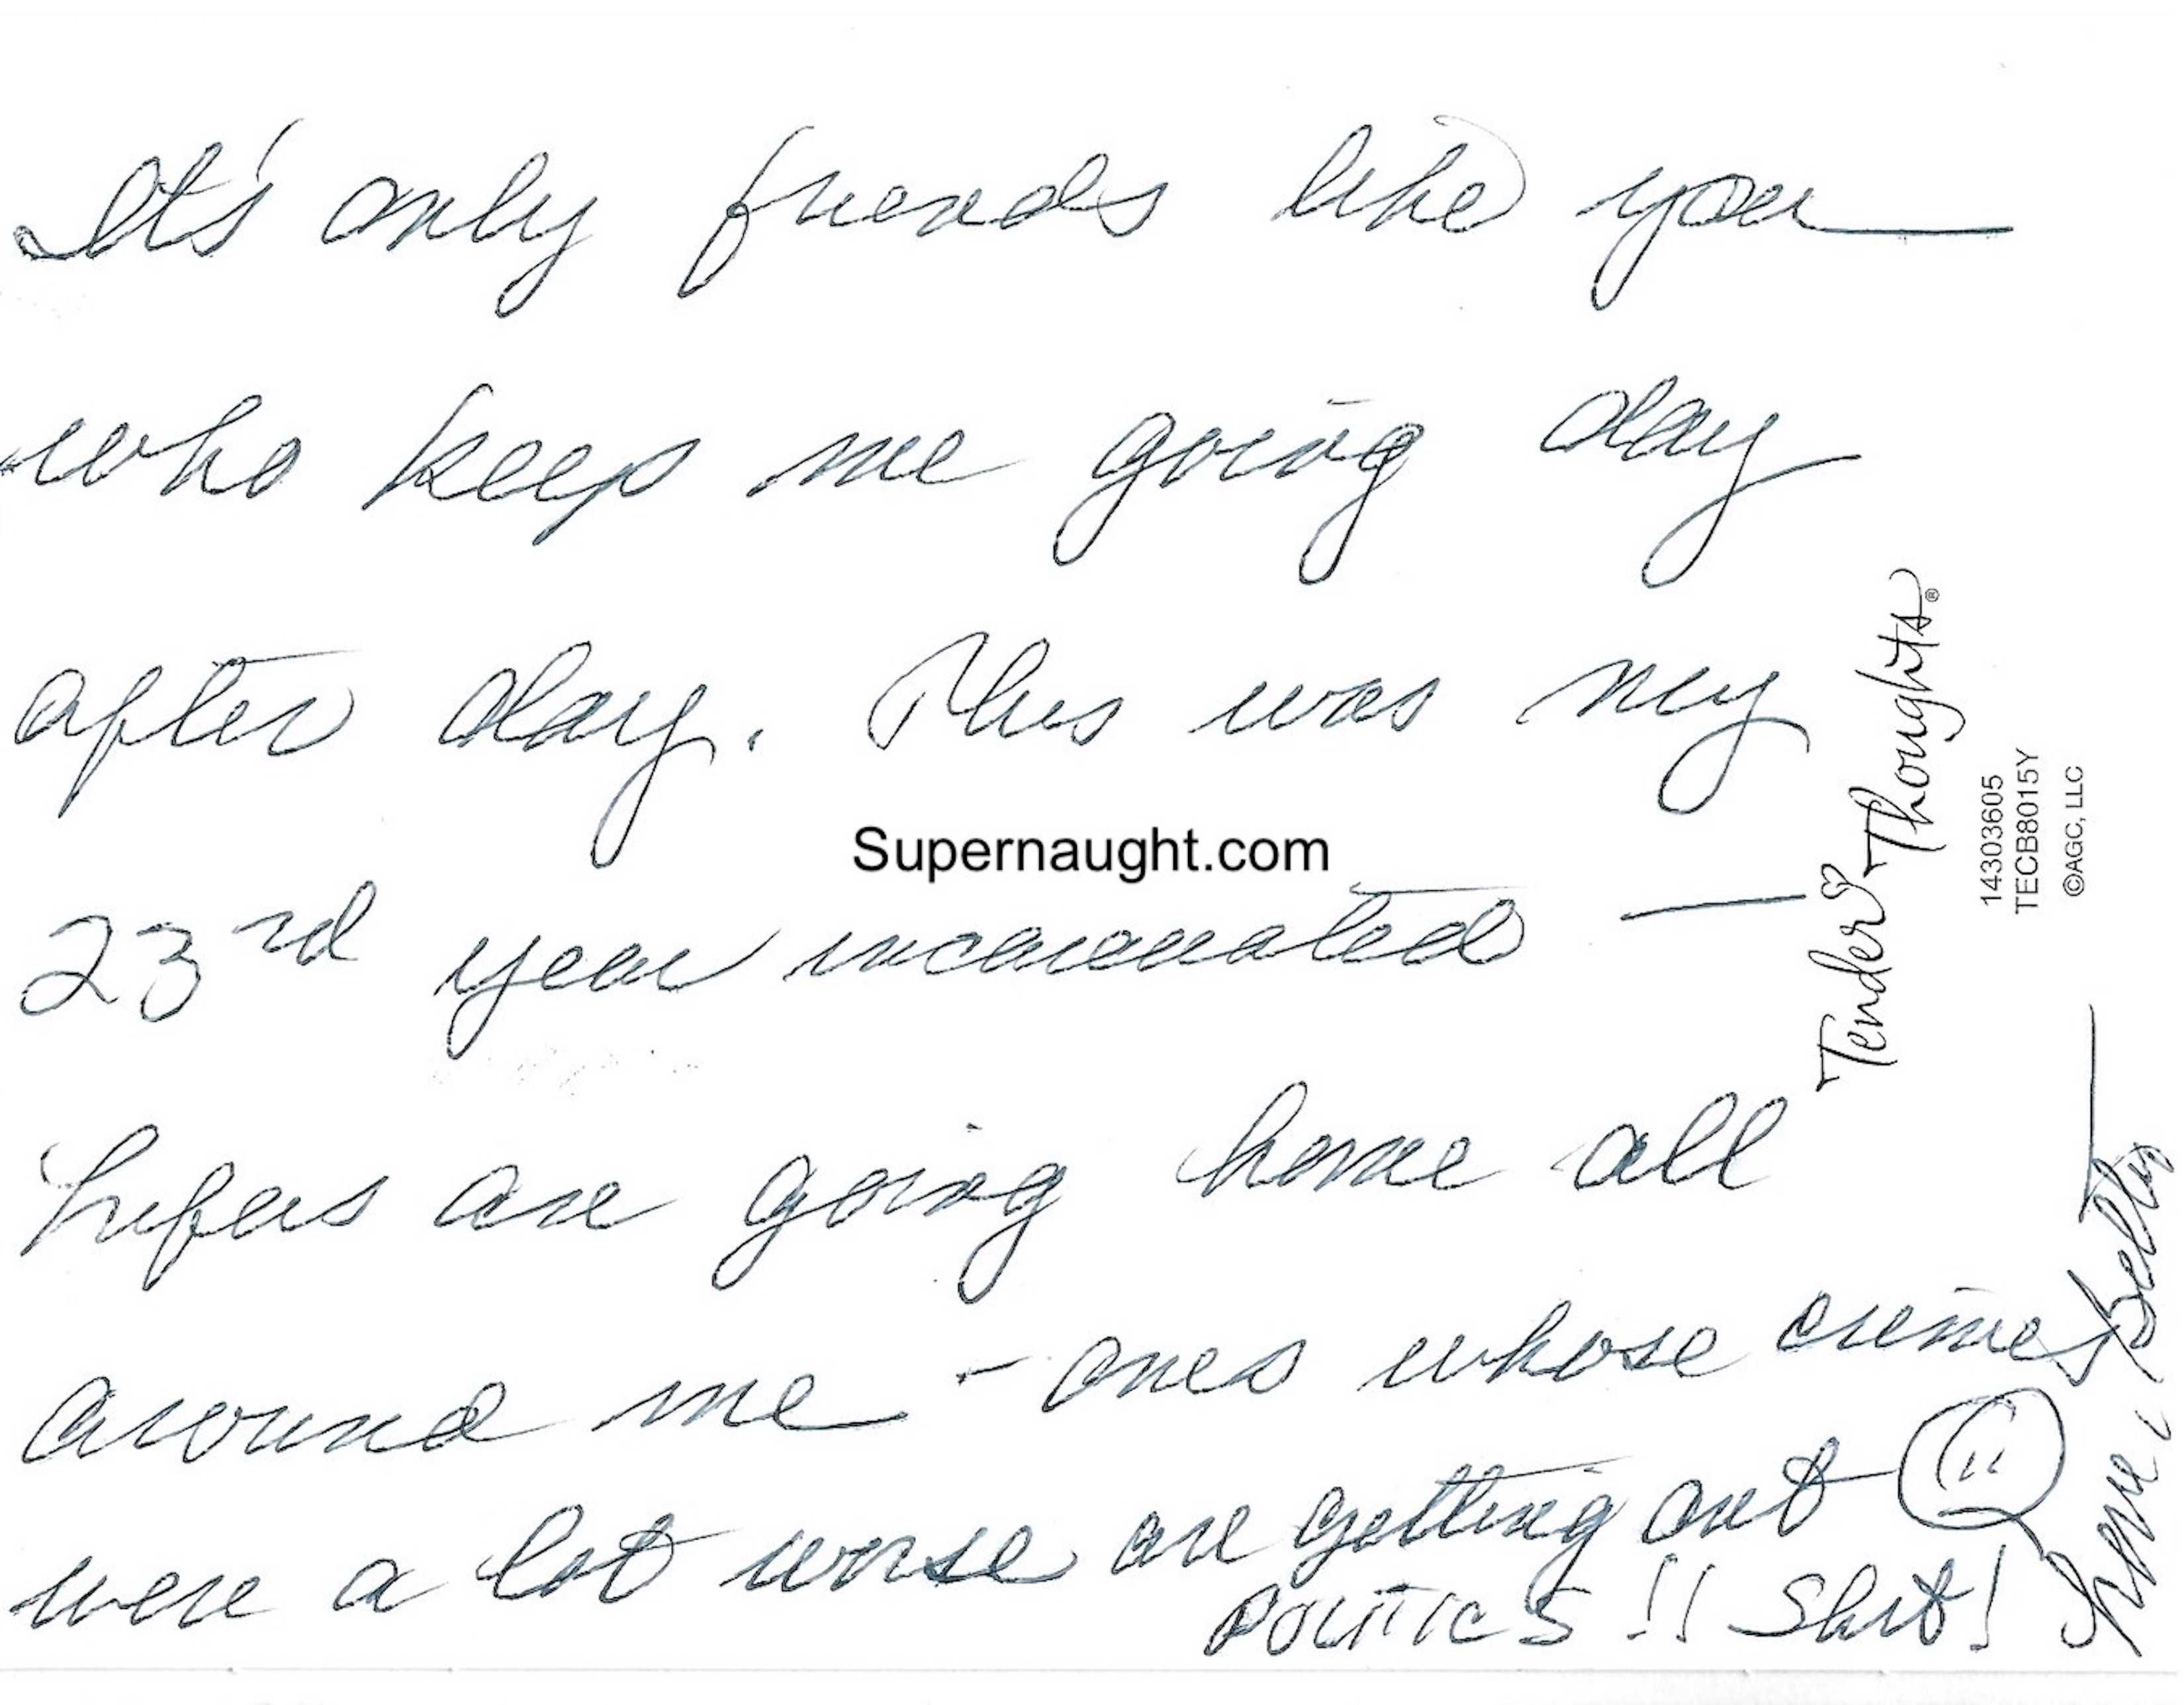 It's only friends like you —
who keep me going day
after day. This was my
23rd year incarcerated —
Lifers are going home all
around me - ones whose crimes
were a lot worse are getting out
POLITICS!! Shit!
Love, Betty
Supernaught.com
Tender Thoughts®
14303605
TECB8015Y
©AGC, LLC